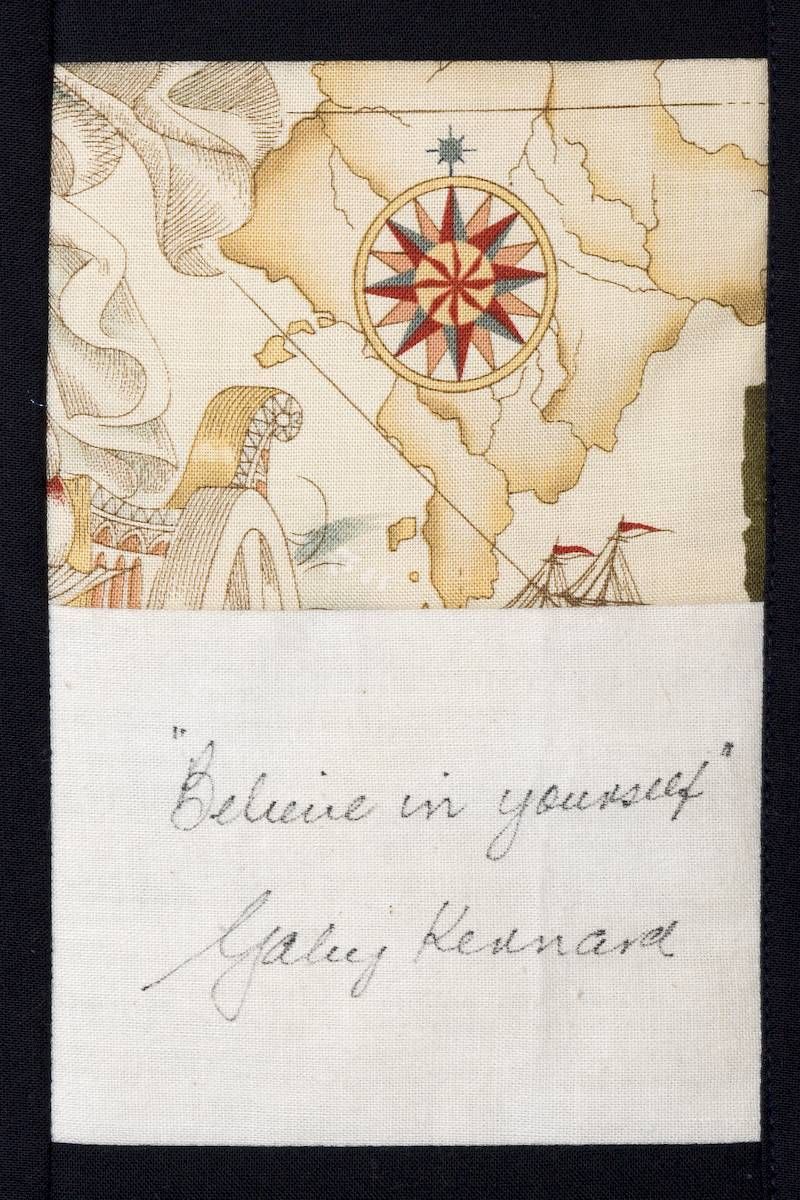 "Believe in yourself"
Gaby Kennard